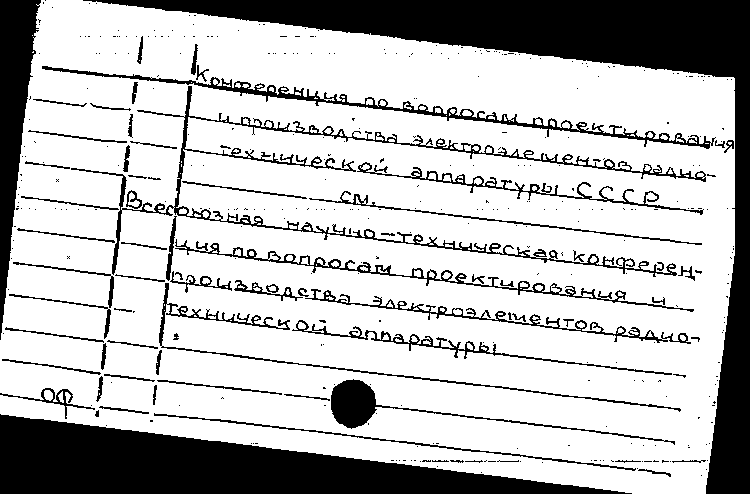 Конференция по вопросам проектирования
и производства электроэлементов радио-
технической аппаратуры СССР
см.
Всесоюзная научно-техническая конферен-
ция по вопросам проектирования и
производства электроэлементов радио-
технической аппаратуры.
ОФ